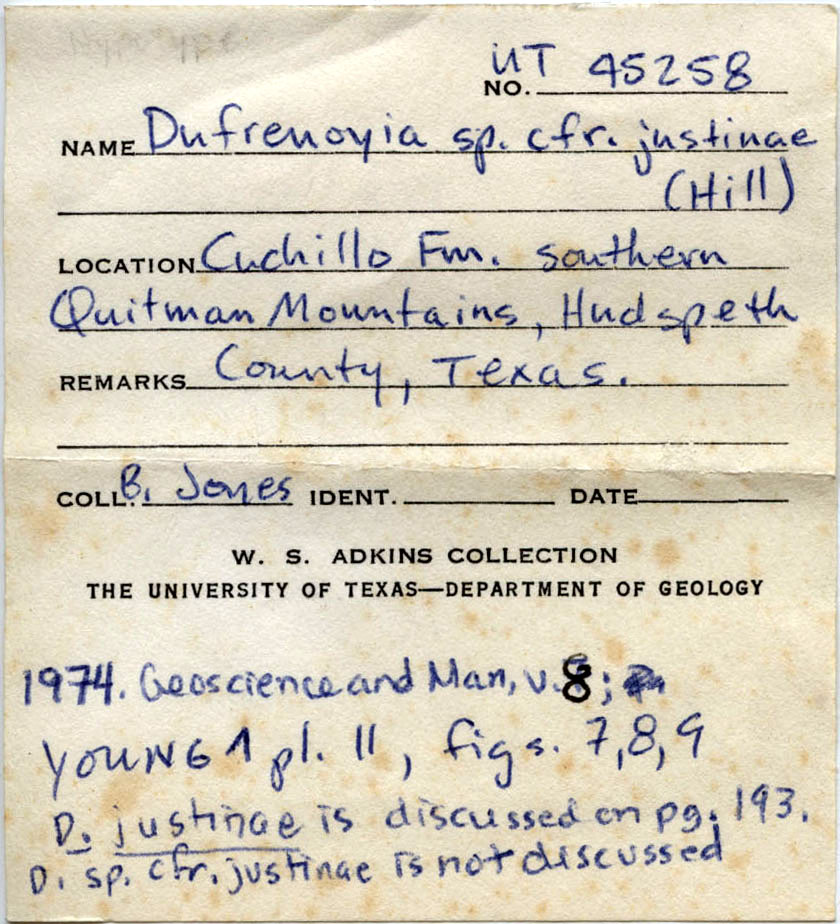 Hypotype
UT
NO. 45258
NAME Dufrenoyia sp. cfr. justinae
(Hill)
LOCATION Cuchillo Fm. southern
Quitman Mountains, Hudspeth
REMARKS County, Texas.
COLL. B. Jones IDENT. DATE
W. S. ADKINS COLLECTION
THE UNIVERSITY OF TEXAS—DEPARTMENT OF GEOLOGY
1974. Geoscience and Man, v. 8;
YOUNG 1 pl. 11, figs. 7,8,9
D. justinae is discussed on pg. 193.
D. sp. cfr. justinae is not discussed